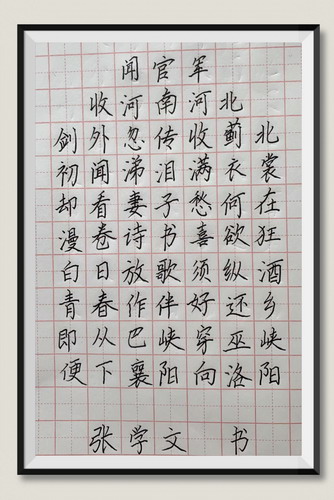 闻官军
收河南河北
剑外忽传收蓟北
初闻涕泪满衣裳
却看妻子愁何在
漫卷诗书喜欲狂
白日放歌须纵酒
青春作伴好还乡
即从巴峡穿巫峡
便下襄阳向洛阳
张学文 书